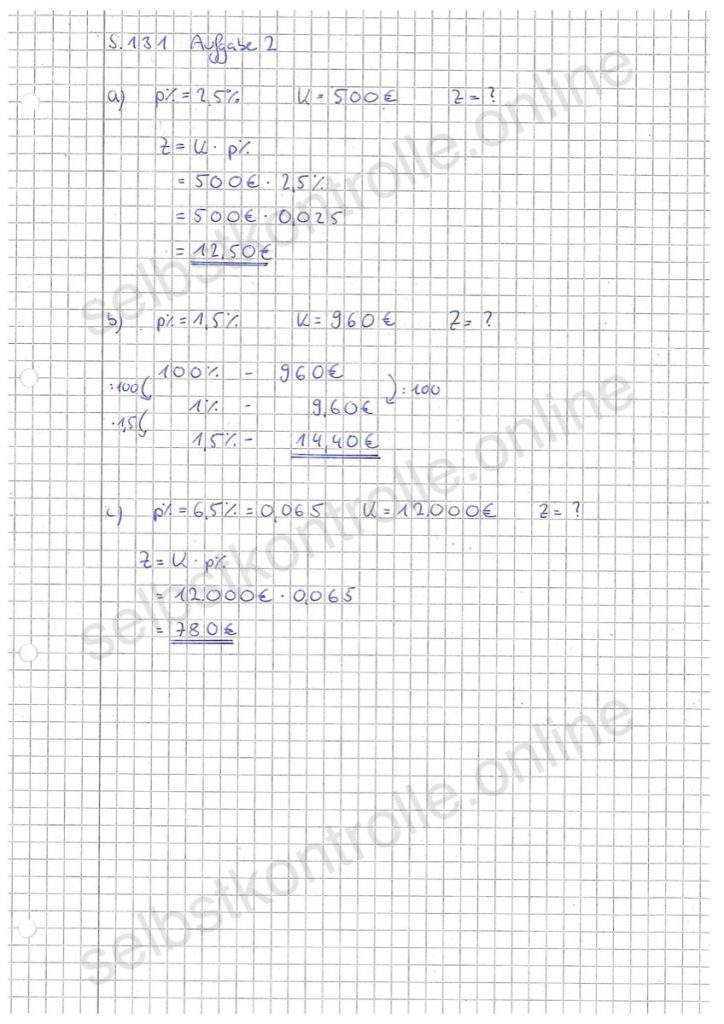 S.131 Aufgabe 2
a) p% = 2,5% K = 500€ Z = ?
Z = K · p%
= 500€ · 2,5%
= 500€ · 0,025
= 12,50€
b) p% = 1,5% K = 960€ Z = ?
100% - 960€
:100 :100
1% - 9,60€
·1,5
1,5% - 14,40€
c) p% = 6,5% = 0,065 K = 12.000€ Z = ?
Z = K · p%
= 12.000€ · 0,065
= 780€
selbstkontrolle.online
selbstkontrolle.online
selbstkontrolle.online